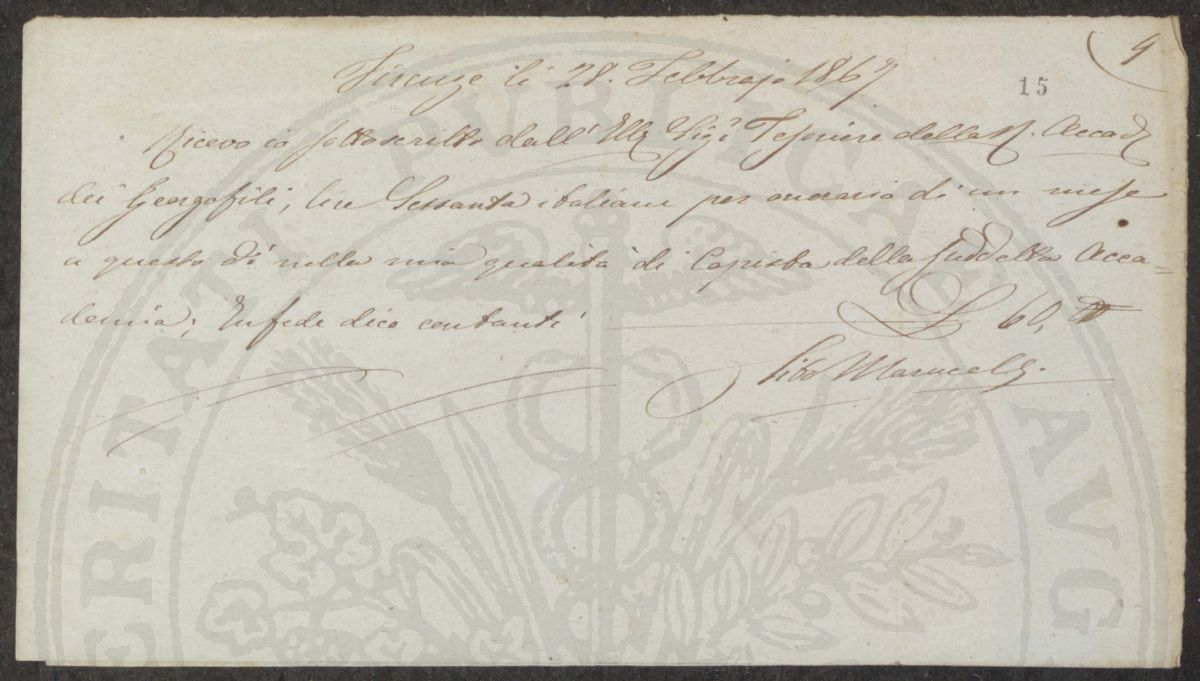 9
15
Firenze li 28. Febbrajo 1867
Ricevo io sottoscritto dall' Ill. Sigr Tesoriere della R. Accad.
dei Georgofili, lire Sessanta italiane per onorario di un mese
a questo dì nella mia qualità di Copista della Suddetta Acca=
demia; In fede dico contanti L 60,
Marucelli.
PROSPERITATI PUBLICAE AUG